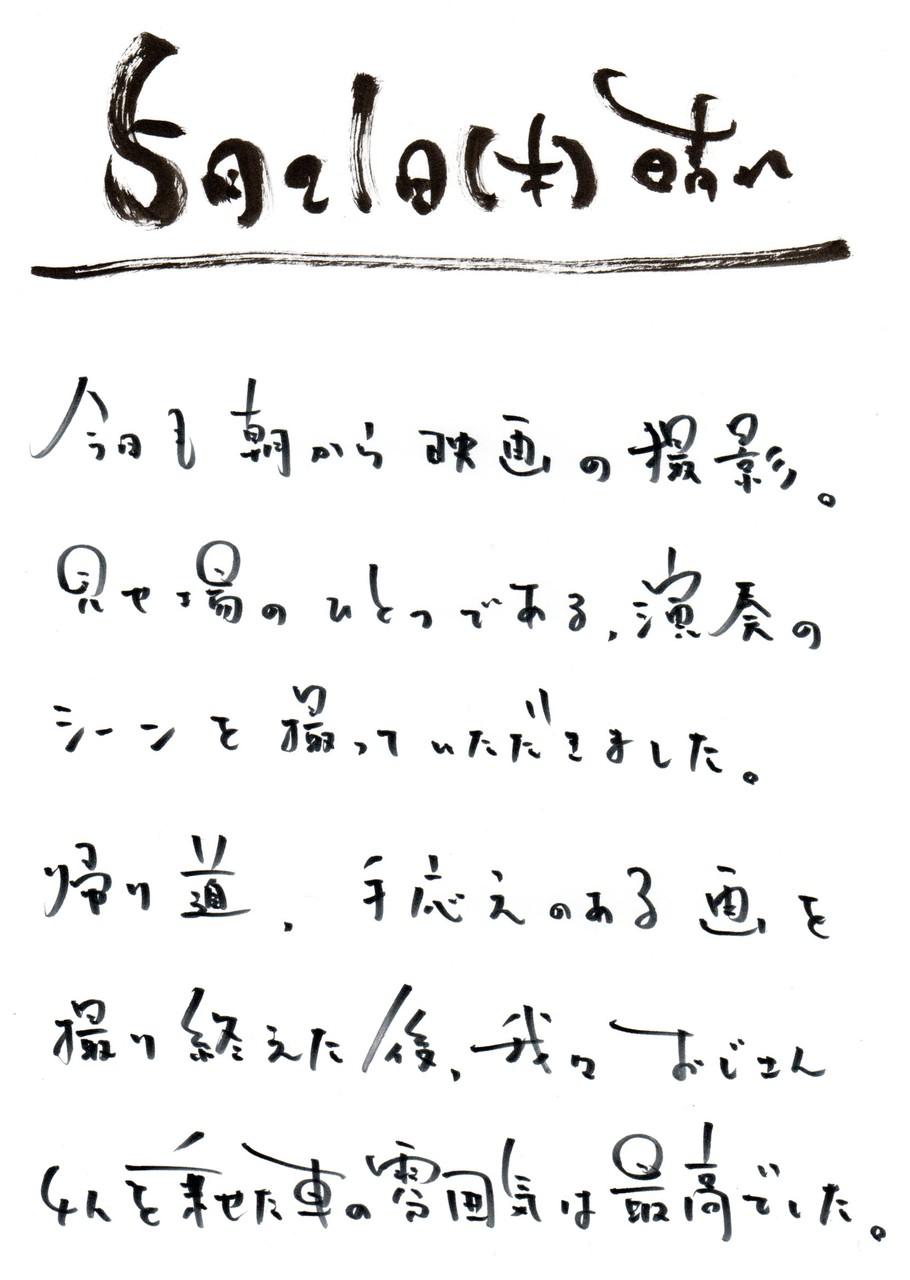 5月21日(木)晴れ
今日も朝から映画の撮影。
見せ場のひとつである,演奏の
シーンを撮っていただきました。
帰り道,手応えのある画を
撮り終えた後,我々おじさん
4人を乗せた車の雰囲気は最高でした。